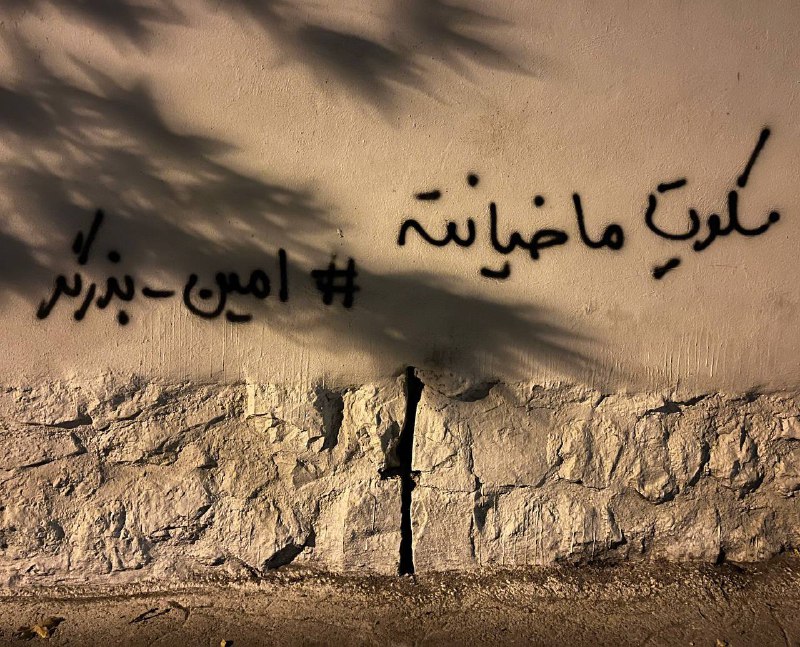 سکوت ما خیانته
#امین_بذرگر